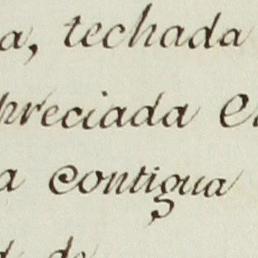 a, techada
preciada en
a contigua
d de